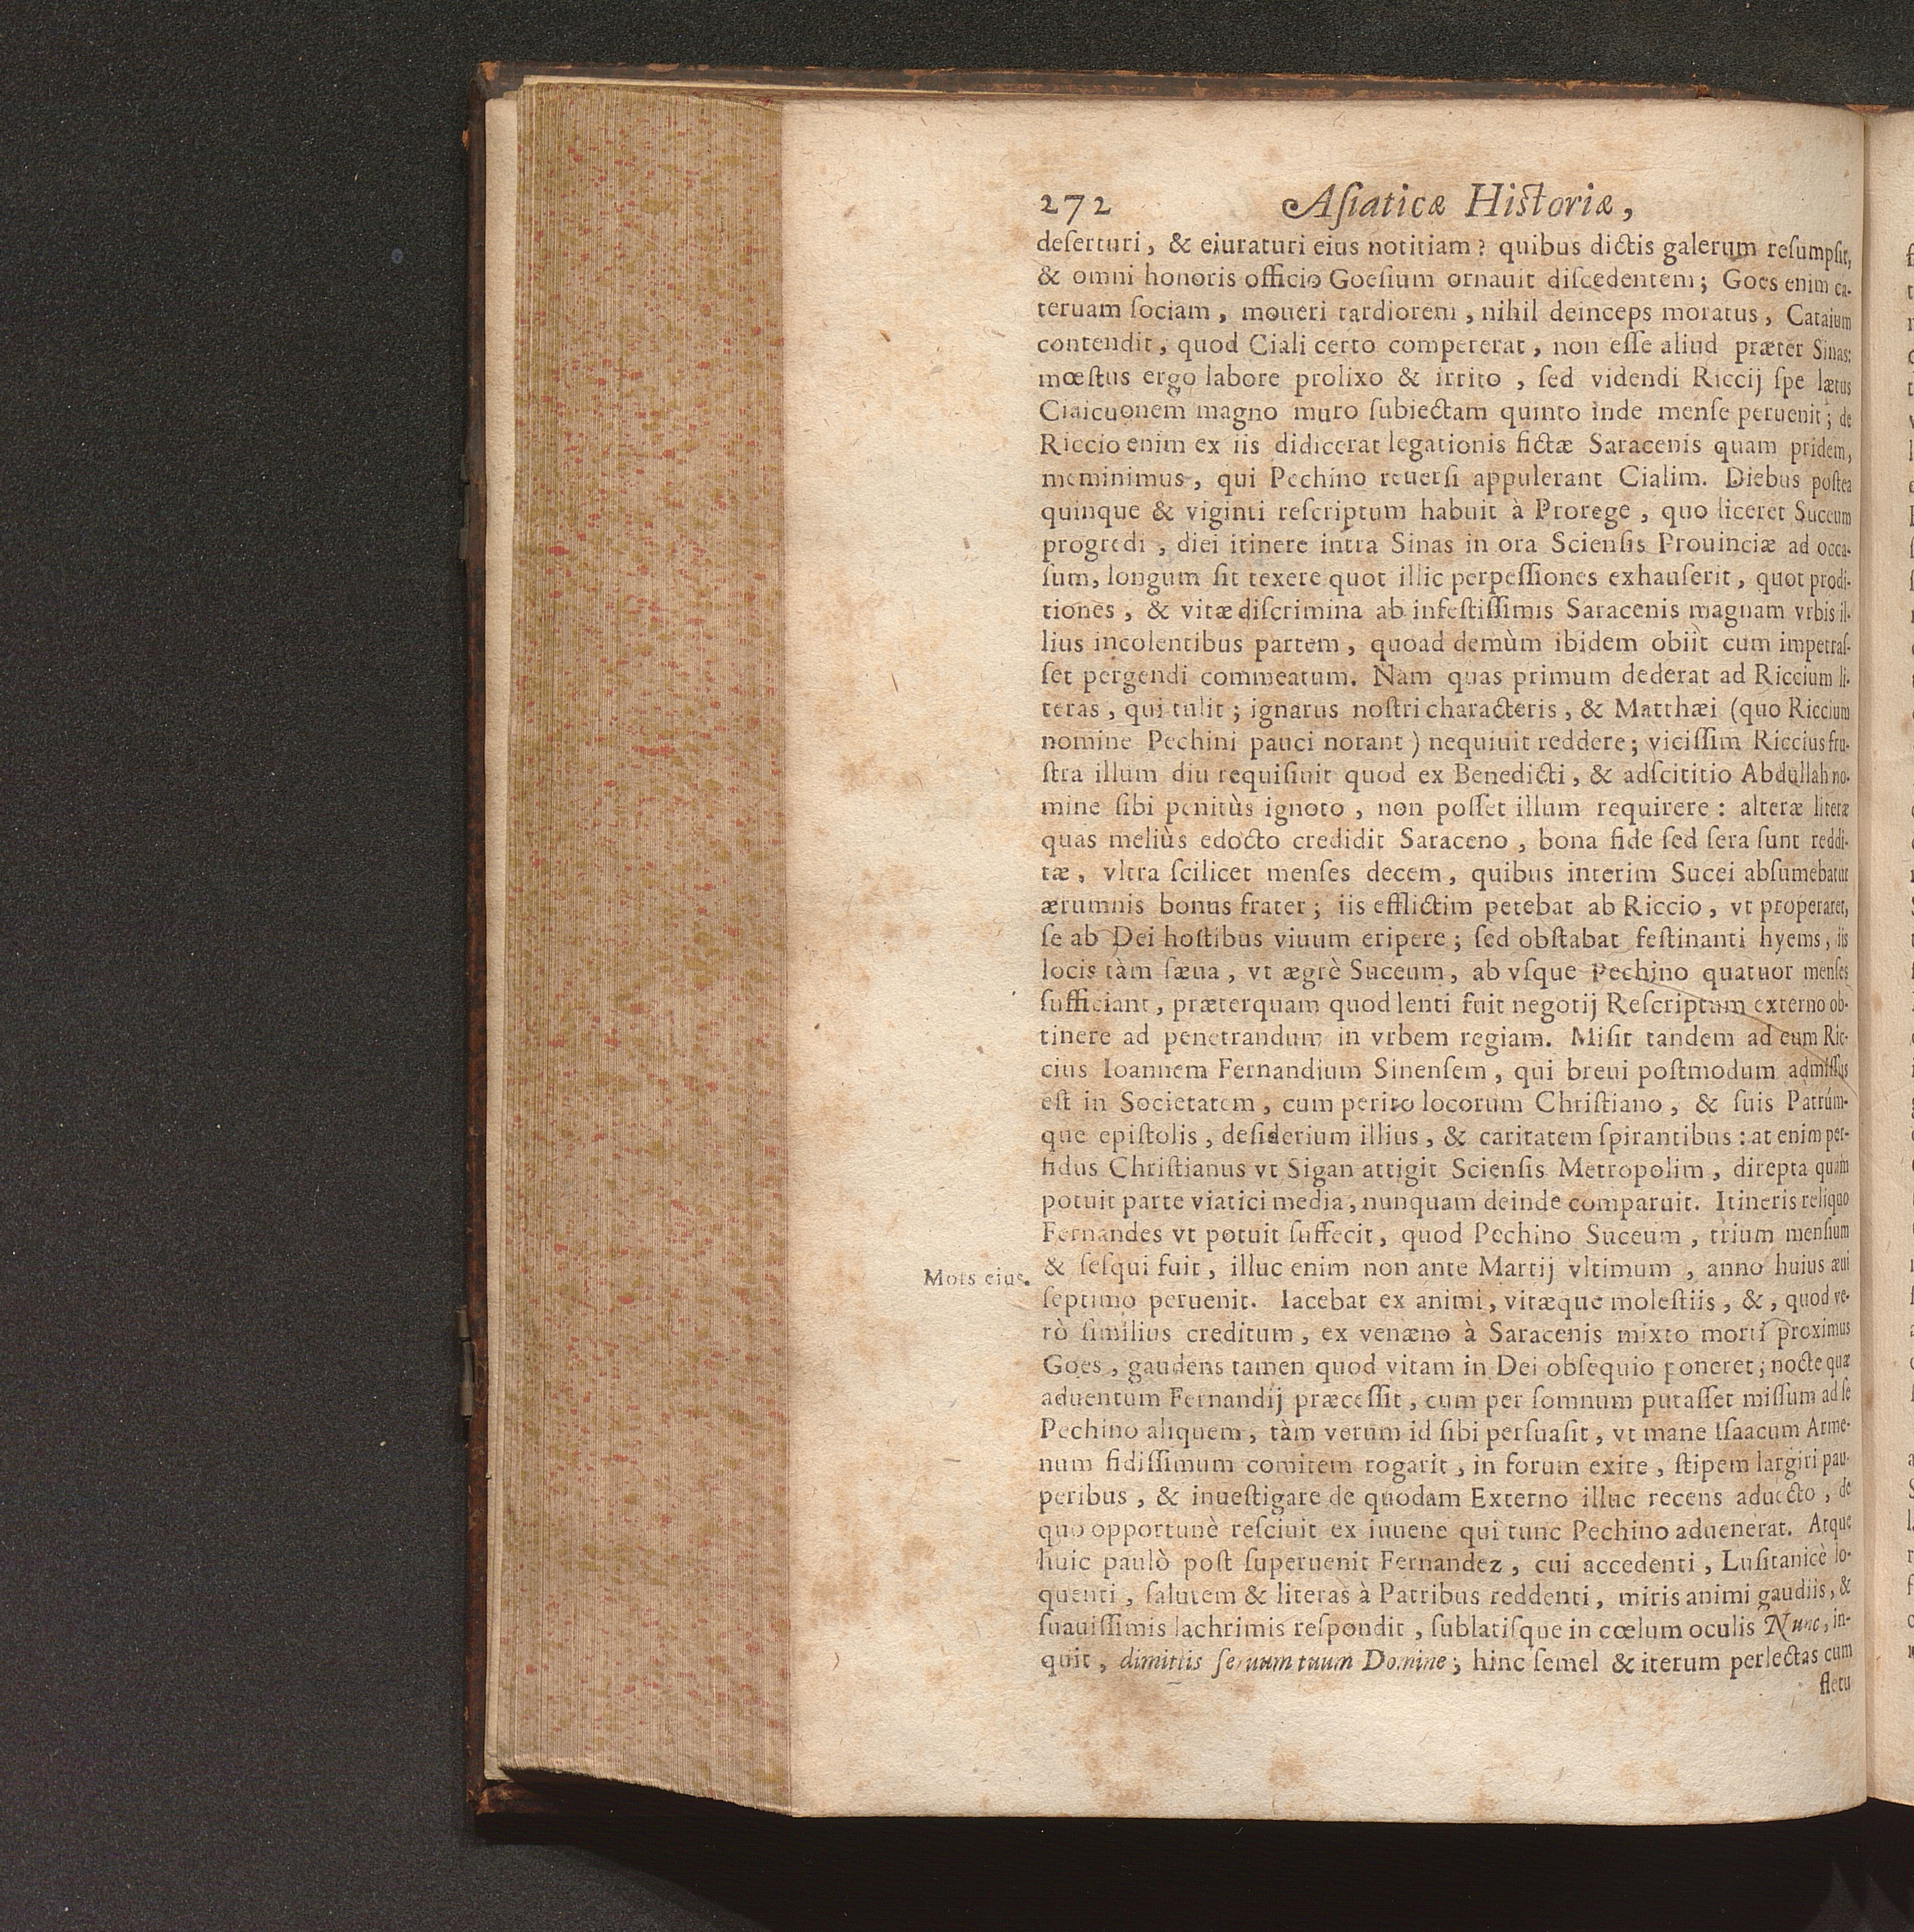 272 Aſiaticæ Hiſtoriæ,
deſerturi, & eiuraturi eius notitiam? quibus dictis galerum reſumpſit,
& omni honoris officio Goeſium ornauit diſcedentem; Goes enim ca-
teruam ſociam, moueri tardiorem, nihil deinceps moratus, Cataium
contendit, quod Ciali certo compererat, non eſſe aliud præter Sinas:
mœſtus ergo labore prolixo & irrito, ſed videndi Riccij ſpe lætus
Ciaicuonem magno muro ſubiectam quinto inde menſe peruenit; de
Riccio enim ex iis didicerat legationis fictæ Saracenis quam pridem,
meminimus, qui Pechino reuerſi appulerant Cialim. Diebus poſtea
quinque & viginti reſcriptum habuit à Prorege, quo liceret Suceum
progredi, diei itinere intra Sinas in ora Scienſis Prouinciæ ad occa-
ſum, longum ſit texere quot illic perpeſſiones exhauſerit, quot prodi-
tiones, & vitæ diſcrimina ab infeſtiſſimis Saracenis magnam vrbis il-
lius incolentibus partem, quoad demùm ibidem obiit cum impetraſ-
ſet pergendi commeatum. Nam quas primum dederat ad Riccium li-
teras, qui tulit; ignarus noſtri characteris, & Matthæi (quo Riccium
nomine Pechini pauci norant) nequiuit reddere; viciſſim Riccius fru-
ſtra illum diu requiſiuit quod ex Benedicti, & adſcititio Abdullah no-
mine ſibi penitùs ignoto, non poſſet illum requirere: alteræ literæ
quas meliùs edocto credidit Saraceno, bona fide ſed ſera ſunt reddi-
tæ, vltra ſcilicet menſes decem, quibus interim Sucei abſumebatur
ærumnis bonus frater; iis efflictim petebat ab Riccio, vt properaret,
ſe ab Dei hoſtibus viuum eripere; ſed obſtabat feſtinanti hyems, iis
locis tàm ſæua, vt ægrè Suceum, ab vſque Pechino quatuor menſes
ſufficiant, præterquam quod lenti fuit negotij Reſcriptum externo ob-
tinere ad penetrandum in vrbem regiam. Miſit tandem ad eum Ric-
cius Ioannem Fernandium Sinenſem, qui breui poſtmodum admiſſus
eſt in Societatem, cum perito locorum Chriſtiano, & ſuis Patrúm-
que epiſtolis, deſiderium illius, & caritatem ſpirantibus: at enim per-
fidus Chriſtianus vt Sigan attigit Scienſis Metropolim, direpta quam
potuit parte viatici media, nunquam deinde comparuit. Itineris reliquo
Fernandes vt potuit ſuffecit, quod Pechino Suceum, trium menſium
Mors eius. & ſeſqui fuit, illuc enim non ante Martij vltimum, anno huius æui
ſeptimo peruenit. Iacebat ex animi, vitæque moleſtiis, &, quod ve-
rò ſimilius creditum, ex venæno à Saracenis mixto morti proximus
Goes, gaudens tamen quod vitam in Dei obſequio poneret; nocte quæ
aduentum Fernandij præceſſit, cum per ſomnum putaſſet miſſum ad ſe
Pechino aliquem, tàm verum id ſibi perſuaſit, vt mane Iſaacum Arme-
num fidiſſimum comitem rogarit, in forum exire, ſtipem largiri pau-
peribus, & inueſtigare de quodam Externo illuc recens aduecto, de
quo opportunè reſciuit ex iuuene qui tunc Pechino aduenerat. Atque
huic paulò poſt ſuperuenit Fernandez, cui accedenti, Luſitanicè lo-
quenti, ſalutem & literas à Patribus reddenti, miris animi gaudiis, &
ſuauiſſimis lachrimis reſpondit, ſublatiſque in cœlum oculis Nunc, in-
quit, dimittis ſeruum tuum Domine; hinc ſemel & iterum perlectas cum
fletu